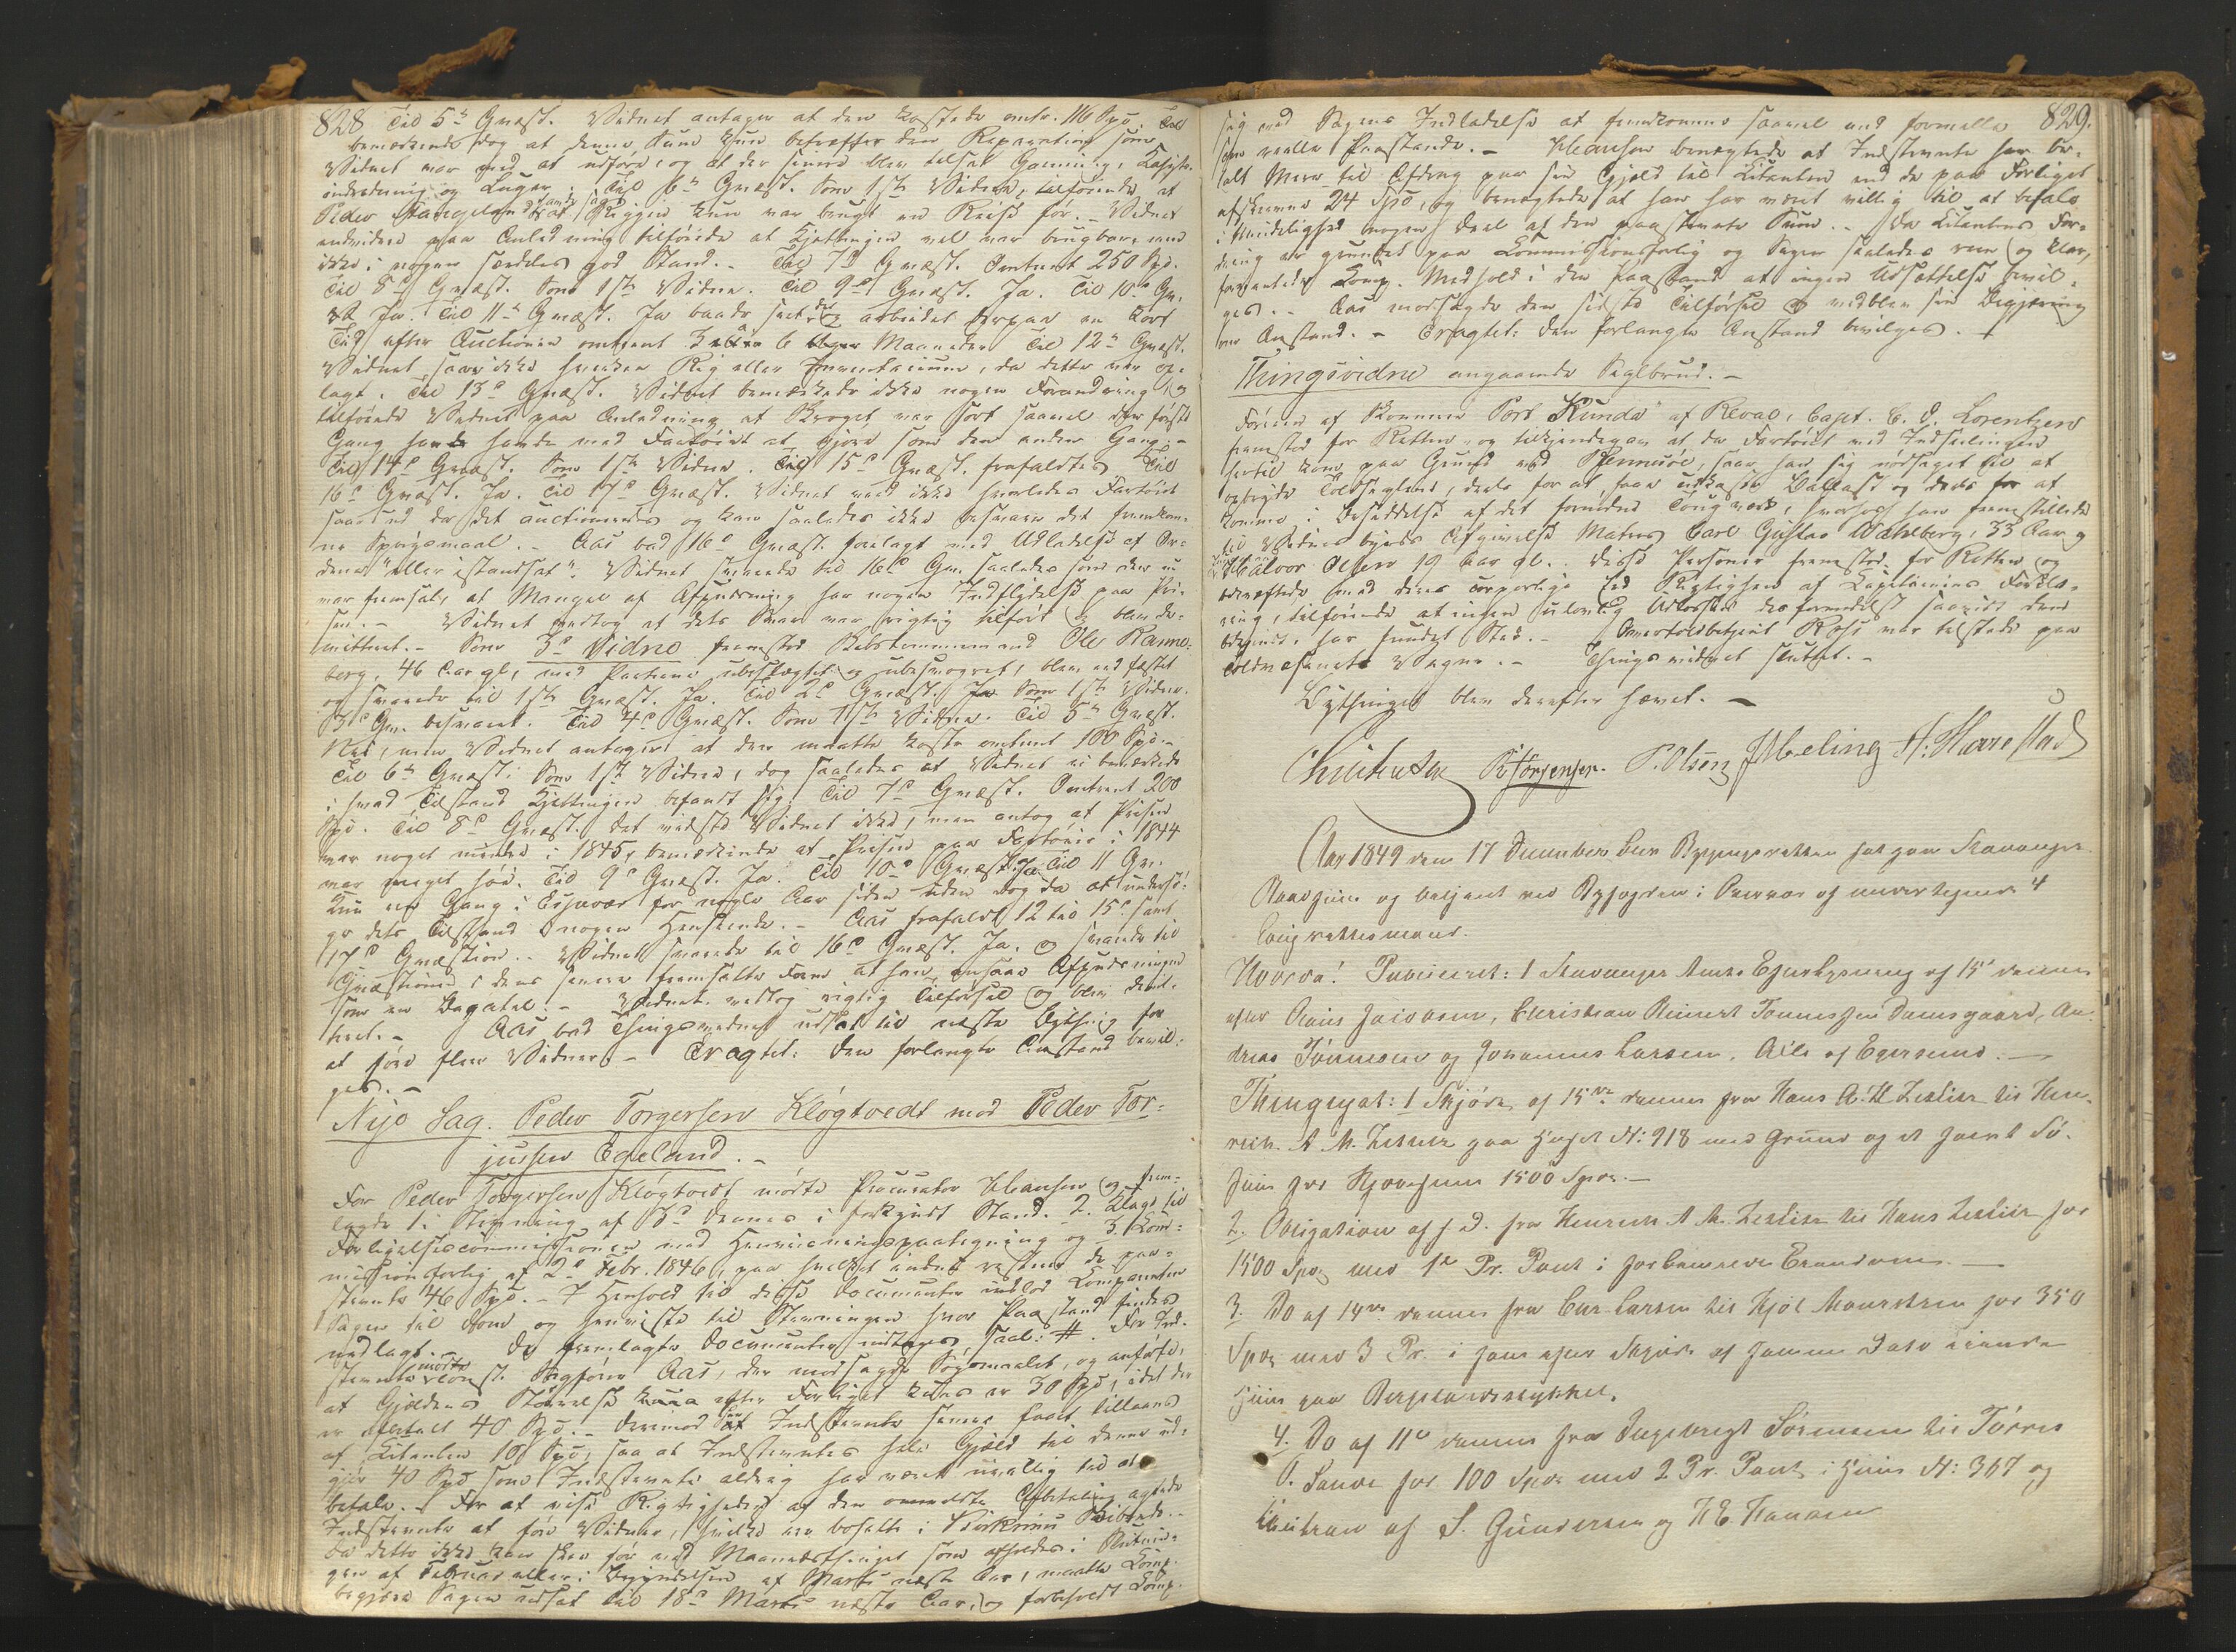 828 Til 5te Qvæst. Vidnet antager at den kostede omtr. 116 Spd. Til
bemærkende dog at denne Sum kun betræffer den Reparation som
Vidnet var med at udføre, og at der senere blev tilsat
indredning og Lugar. Til 6te Qvæst. Som 1ste Vidne, tilføiende at
Peder Stangeland at Riggen kun var brugt en Reise før. - Vidnet
endvidere paa Anledning tilføiede at Kjettingen vel var brugbar men
ikke i nogen særdeles god Stand. - Til 7de Qvæst. Omtrent 250 Spd.
Til 8de Qvæst. Som 1ste Vidne. Til 9de Qvæst. Ja. Til 10de Qv.
Ja. Til 11te Qvæst. Ja baade seet og arbeidet derpaa en kort
Tid efter Auctionen omtrent 3 a 6 Maaneder Til 12te Qvæst.
Vidnet saae ikke hverken Rig eller Inventarium, da dette var op-
lagt. Til 13de Qvæst. Vidnet bemærkede ikke nogen Forandring, og
tilføiede Vidnet paa Anledning at Vraget var sort saavel den første
Gang han havde med Fartøiet at gjøre som den anden Gang. -
Til 14de Qvæst. Som 1ste Vidne. Til 15de Qvæst. frafaldtes Til
16de Qvæst. Ja. Til 17de Qvæst. Vidnet veed ikke hvorledes Fartøiet
saae ud da det auctioneredes og kan saaledes ikke besvare det fremkom-
ne Spørgsmaal. - Aas bad 16de Qvæst. forelagt med Udladelse af Or-
dene "eller istandsat". Vidnet svarede til 16de Qv. saaledes som den nu
var fremsat, at Mangel af Afpudsning har nogen Indflydelse paa Pri-
sen. - Vidnet vedtog at dets Svar var rigtig tilført og blev de-
mitteret. - Som 3de Vidne fremstod Skibstømmermand Ole Ranne-
berg, 46 Aar gl, med Parterne ubeslægtet og ubesvogret, blev edfæstet
og svarede til 1ste Qvæst. Ja. Til 2de Qvæst. Som 1ste Vidne.
3de Qv. besvaret. Til 4de Qvæst. Som 1ste Vidne. Til 5te Qvæst.
Nei, men Vidnet antager at den maatte koste omtrent 100 Spd. -
Til 6te Qvæst. Som 1ste Vidne, dog saaledes at Vidnet ei bemærkede
i hvad Tilstand Kjettingen befandt sig. Til 7de Qvæst. Omtrent 200
Spd. Til 8de Qvæst. Det vidste Vidnet ikke, men antog at Prisen
var noget mindre i 1845, bemærkende at Prisen paa Fartøier i 1844
var meget høi. Til 9de Qvæst. Ja. Til 10de Qvæst. Ja. Til 11 Qv.
Kun en Gang i for nogle Aar siden uden dog da at undersø-
ge dets Tilstand i nogen Henseende. - Aas frafaldt 12 til 15de samt
17de Qvæstion. - Vidnet svarede til 16de Qvæst. Ja. og svarede til
Qvæstionen i dens senere fremsatte Form at han ansaae Afpudsningen
som en Bagatel. - Vidnet vedtog rigtig Tilførsel og blev dimit-
teret. - Aas bad Thingsvidnet udsat til næste Bything for
at føre flere Vidner. - Eragtet: Den forlangte Anstand bevil-
ges. -
Nye Sag. Peder Torgersen Kløgtvedt mod Peder Tor-
jussen Egeland. -
For Peder Torgersen Kløgtvedt mødte Procurator Hansen og frem-
lagde 1. Stevning af 3de dennes i forkyndt Stand. 2. Klage til
Forligelsescommissionen med Henviisningspaategning og 3. Kom-
missionsforlig af 2de Febr. 1846, paa hvilket endnu restere de paa-
stevnte 46 Spd. - I Henhold til disse Documenter indlod Comparenten
Sagen til Dom og henviste til Stevningen hvor Paastand findes
nedlagt. - De fremlagte Documenter indtages, saal: #. For Ind-
stevnte mødte const. Sagfører Aas, der modsagde Søgsmaalet, og anførte,
at Gjældens Størrelse efter Forliget kun er 30 Spd, idet der
er afbetalt 40 Spd. - Derimod har Indstevnte senere faaet tillaans
af Citanten 10 Spd, saa at Indstevntes hele Gjæld til denne ud-
gjør 40 Spd som Indstevnte aldrig har været uvillig til at
betale. - For at vise Rigtigheden af den ommeldte Afbetaling agtede
Indstevnte at føre Vidner, hvilke ere bosatte i
Da dette ikke kan skee før ved Maanedsthinget som afholdes i Slutnin-
gen af Februar eller i Begyndelsen af Marts næste Aar, maatte Comp.
begjære Sagen udsat til 18de Marts næste Aar, og forbeholdt Comp.
829.
sig ved Sagens Indladelse at fremkomme saavel med formelle
som reelle Paastande. - Hansen benægtede at Indstevnte har be-
talt Mere til Afdrag paa sin Gjæld til Citanten end de paa Forliget
afskrevne 24 Spd, og benægtede at han har været villig til at betale
i Mindelighed nogen Deel af den paastevnte Sum. - Da Citantens For-
dring er grundet paa Commissionsforlig og Sagen saaledes reen og klar,
formeente Comp. Medhold i den Paastand at ingen Udsættelse bevil-
ges. - Aas modsagde den sidste Tilførsel og vedblev sin Begjæring
om Anstand. - Eragtet: Den forlangte Anstand bevilges. -
Thingsvidne angaaende Seglbrud. -
Føreren af Skonnert "Port Kunda" af Reval, Capt. C. J. Lorentzen
fremstod for Retten og tilkjendegav at da Fartøiet ved Indseilingen
hertil kom paa Grund ved saae han sig nødsaget til at
opbryde Toldseglene, deels for at faae udkastet Ballast og deels for at
komme i Besiddelse af det fornødne Tougværk, hvorhos han fremstillede
til Vidnesbyrds Afgivelse Matros Carl Gustav Wahlberg, 33 Aar og
Halvor Olsen 19 Aar gl. Disse Personer fremstod for Retten og
bekræftede med deres corporlige Eed Rigtigheden af Capitainens Forkla-
ring, tilføiende at ingen ulovlig Udlosning derformedelst saavidt dem
bekjendt, har fundet Sted. - Overtoldbetjent Ross var tilstede paa
Toldvæsenets Vegne. - Thingsvidnet sluttet. -
Bythinget blev derefter hævet. -
Christensen R. Jørgensen. P. Olsen J Meling H. Haarestad
Aar 1849 den 17 December blev Bythingsretten sat paa Stavanger
Raadhuus og betjent ved Byfogden i Overvær af undertegnede 4
Laugrettesmænd.
Hvorda: Publiceret: 1 Stavanger Amts Efterlysning af 15de dennes
efter Claus Jacobsen, Christian Reinert Tønnessen Damsgaard, An-
dreas Tønnesen og Johannes Larsen, Alle af Egersund. -
Thinglyst: 1 Skjøde af 15de dennes fra Hans A. H. Zetlitz til Hen-
rich A M. Zetlitz paa Huset N: 918 med Grund og et halvt Sø-
huus for Kjøbesum 1500 Spd. -
2. Obligation af s. D. fra Henrich A M. Zetlitz til Hans Zetlitz for
1500 Spd med 1ste Pr. Pant i forbemeldte Eiendom. -
3. Do af 14de dennes fra Chr. Larsen til Kjøl Mauritzen for 350
Spd med 3 Pr. i ham efter Skjøde af samme Dato eiende
Huus paa Bergelandsstykket.
4. Do af 11te dennes fra Ingebregt Sørensen til Tørres
O. Sande for 100 Spd med 2 Pr. Pant i Huus N: 367 og
af S. Gundersen og H E. Hansen